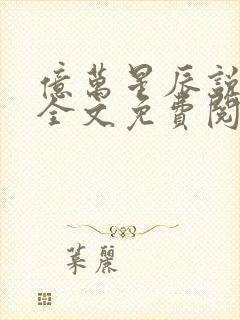 億萬星辰說
全文免費閱
葉麗